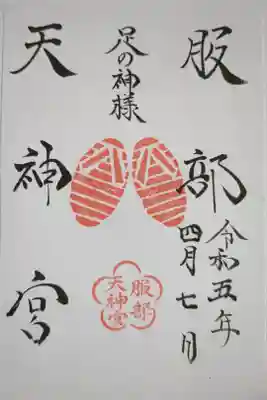 服部
天神宮
足の神様
令和五年
四月七日
服部
天神宮